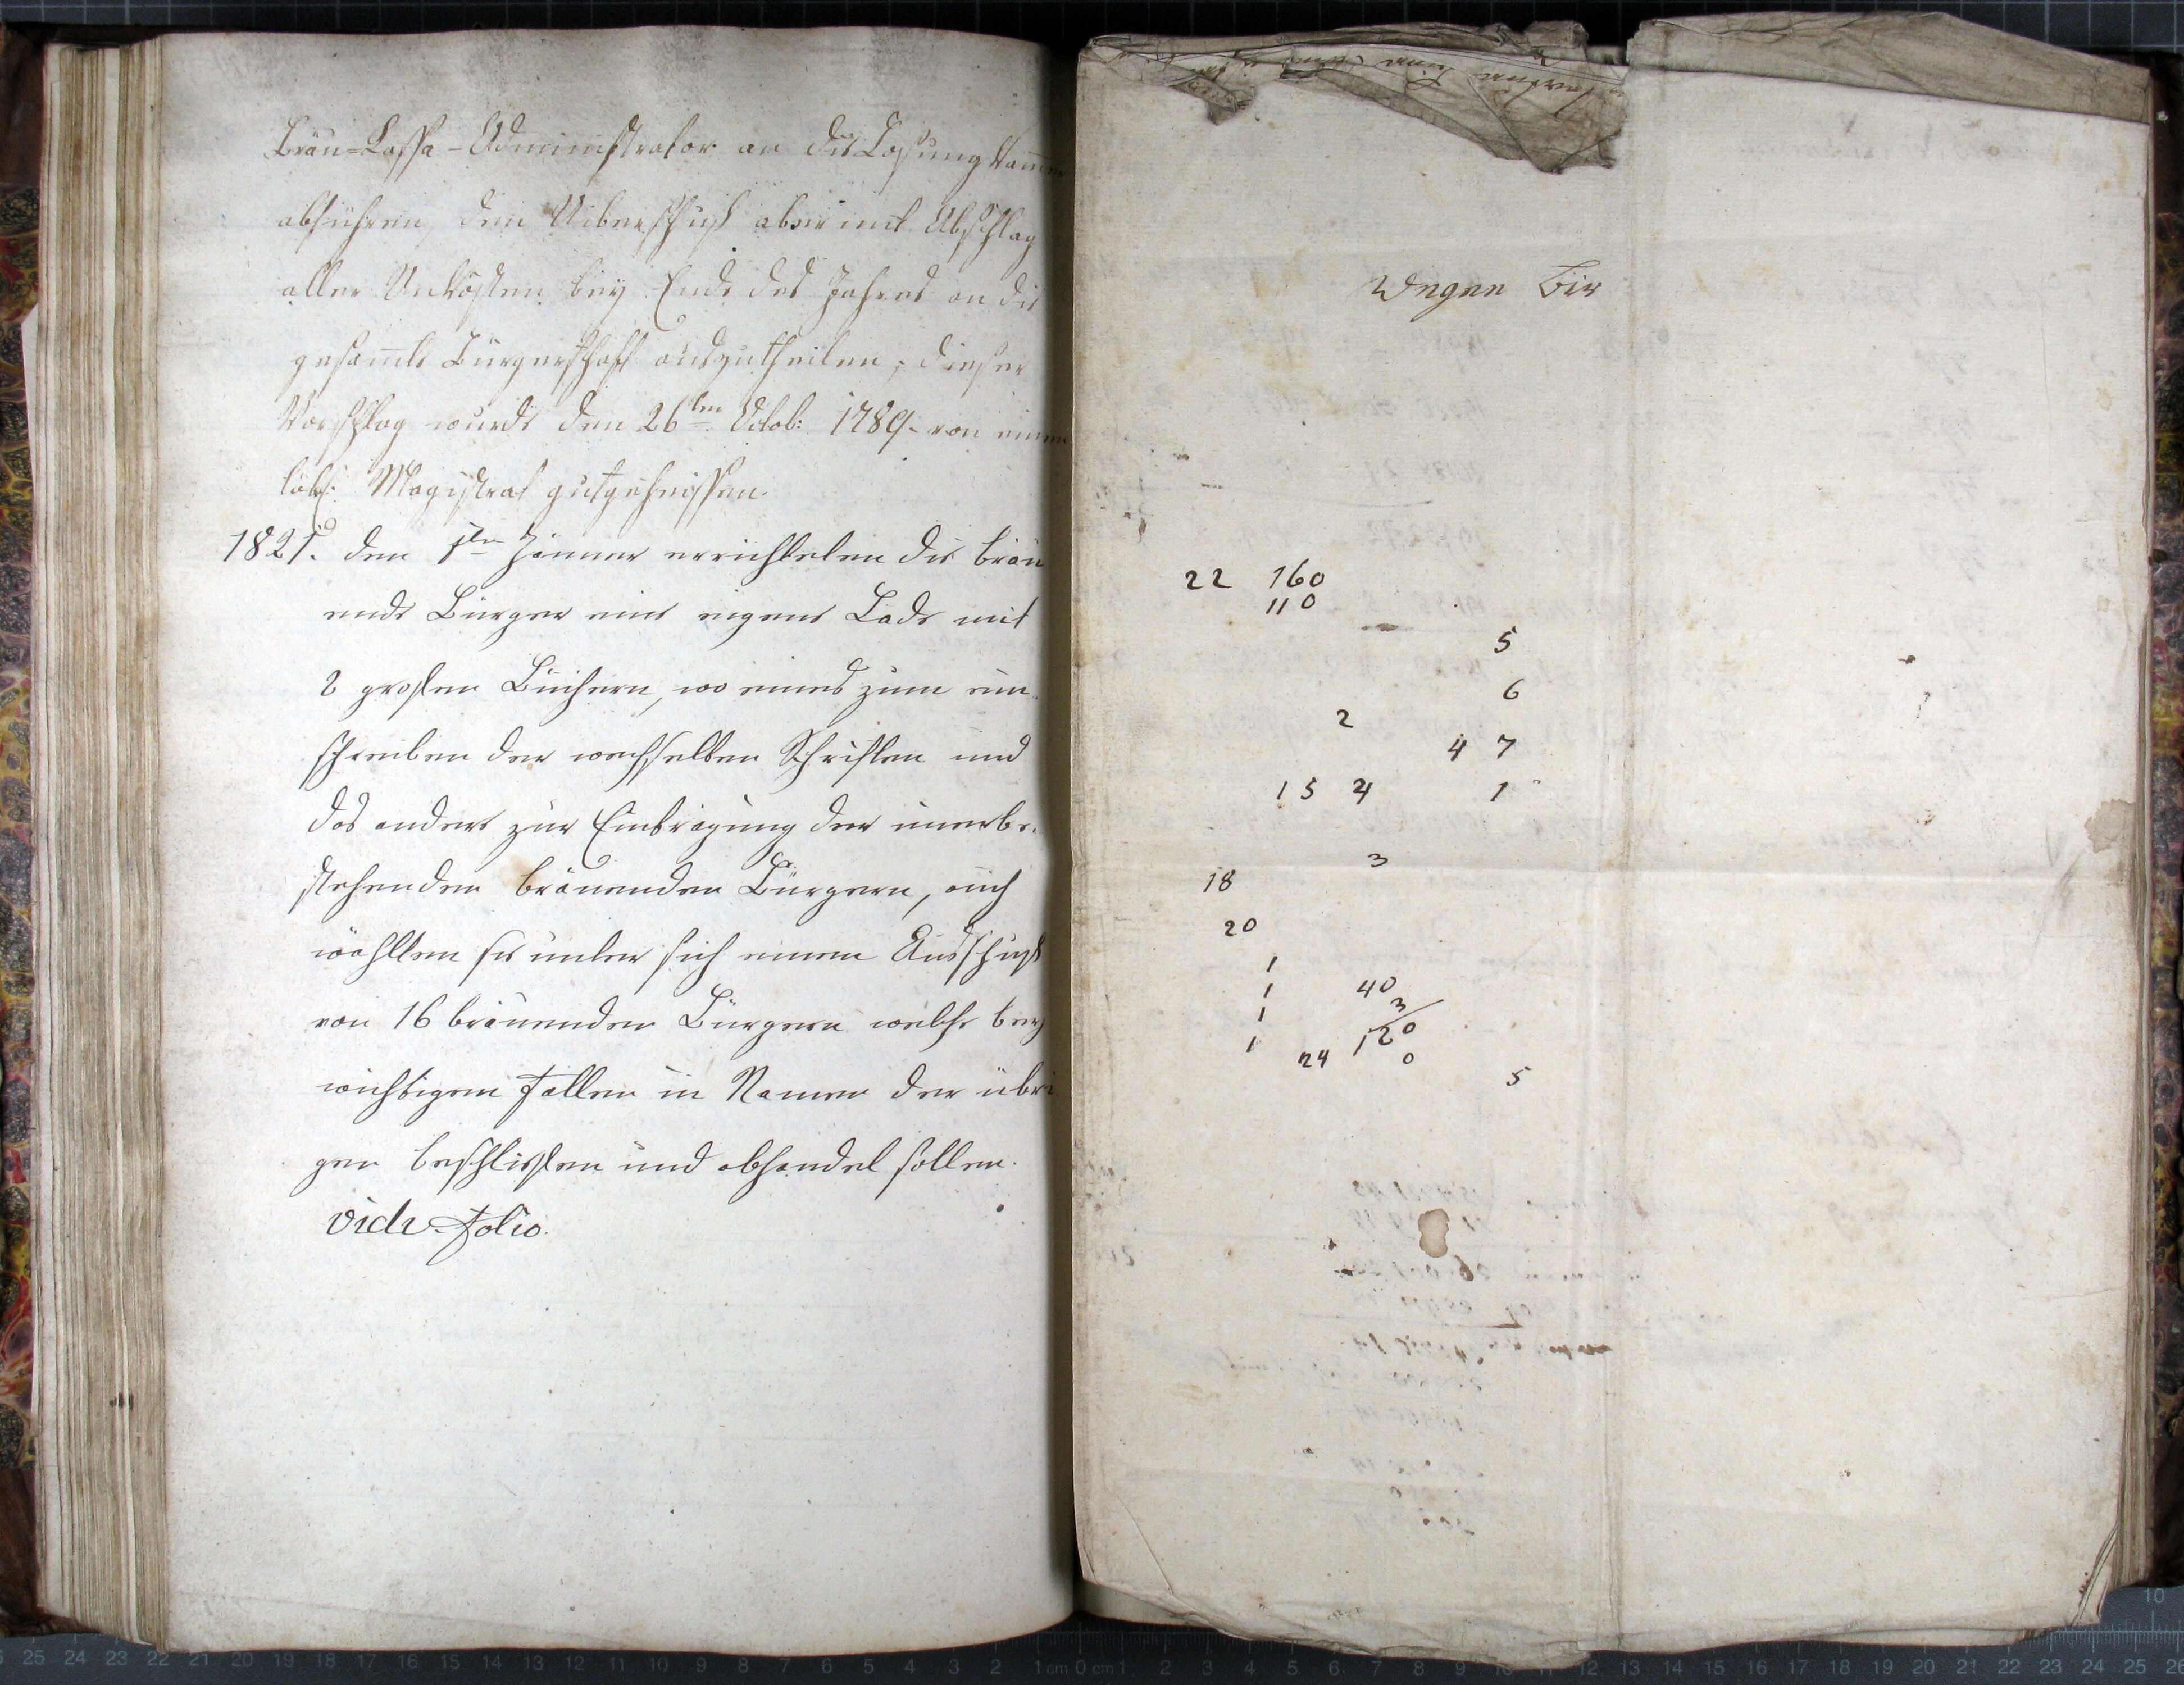 Bräu-Cassa-Administrator an die Losungkam̅er
abführen, den Uiberschuß aber mit Abschlag
aller Unkösten bey Ende des Jahres an die
gesam̅te Bürgerschaft auszutheilen; dieser
Vorschlag wurde den 26ten Octob: 1789. von einem
löbl: Magistrat gutgeheissen.
1821. den 1ten Jänner errichteten die bräu
ende Bürger eine eigene Lade mit
2 grosen Büchern, wo eines zum ein
schreiben der Schriften und
das andere zur Eintragung der
stehenden bräuenden Bürgern, auch
wöhlten sie unter sich einen Ausschuß
von 16 bräuenden Bürgern welche bey
wichtigen Fällen in Namen der übri
gen beschlißen und abhandel sollen.
vide Folio.
Wegen Bir
22 160
110
5
6
2
4 7
15 4 1
3
18
20
1
1 40
1 3
1 24 120
0
5